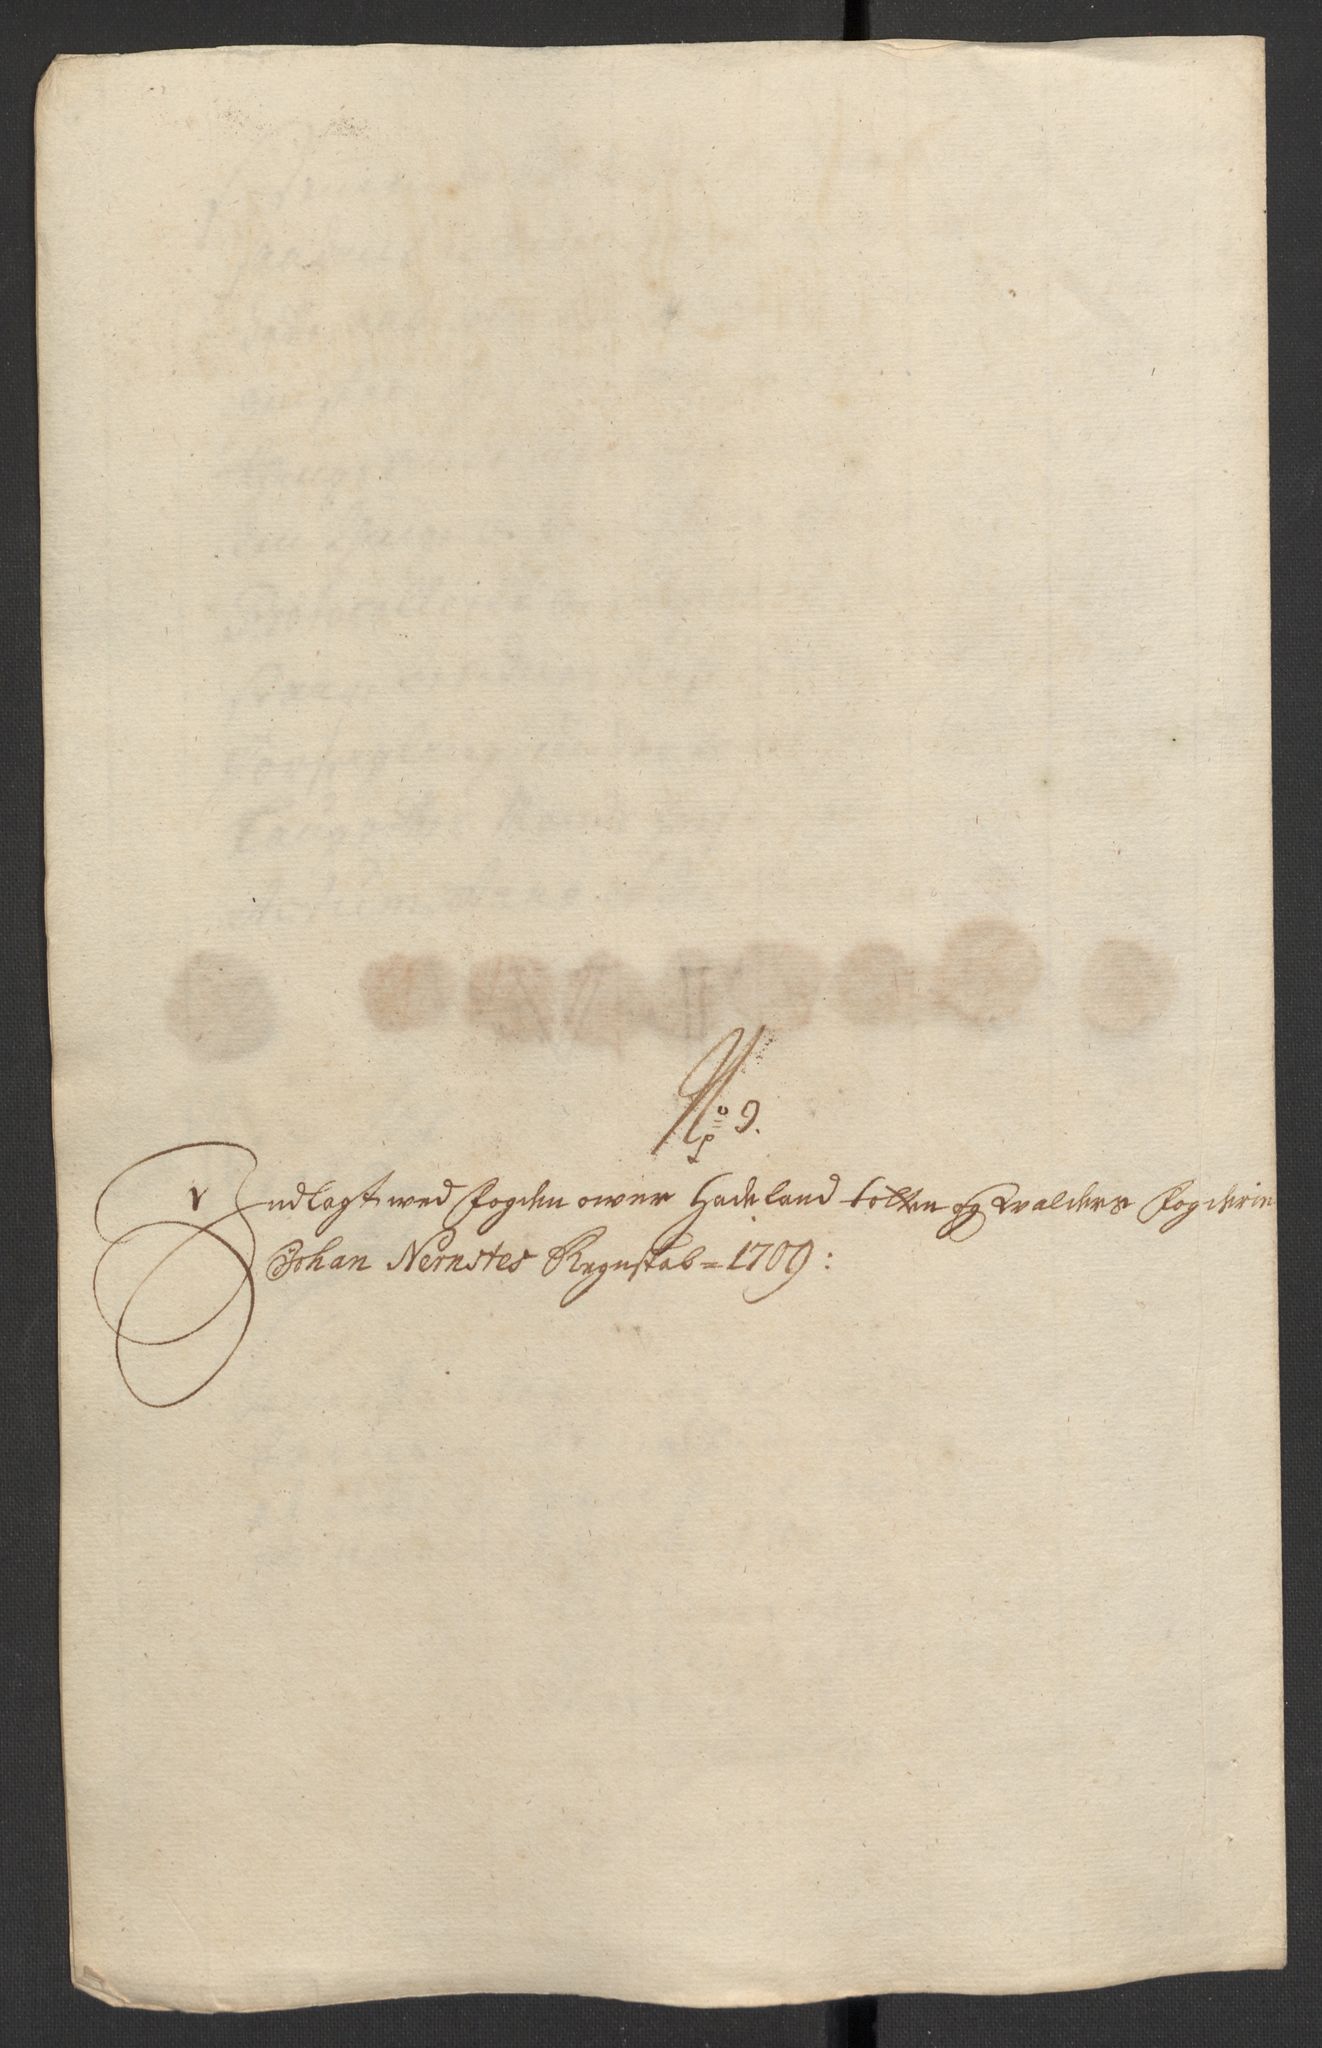 No 9.
Indlagt wed fogden ower Hadeland totten og walders fogderie
Johan Nernstes Regnskab = 1709: